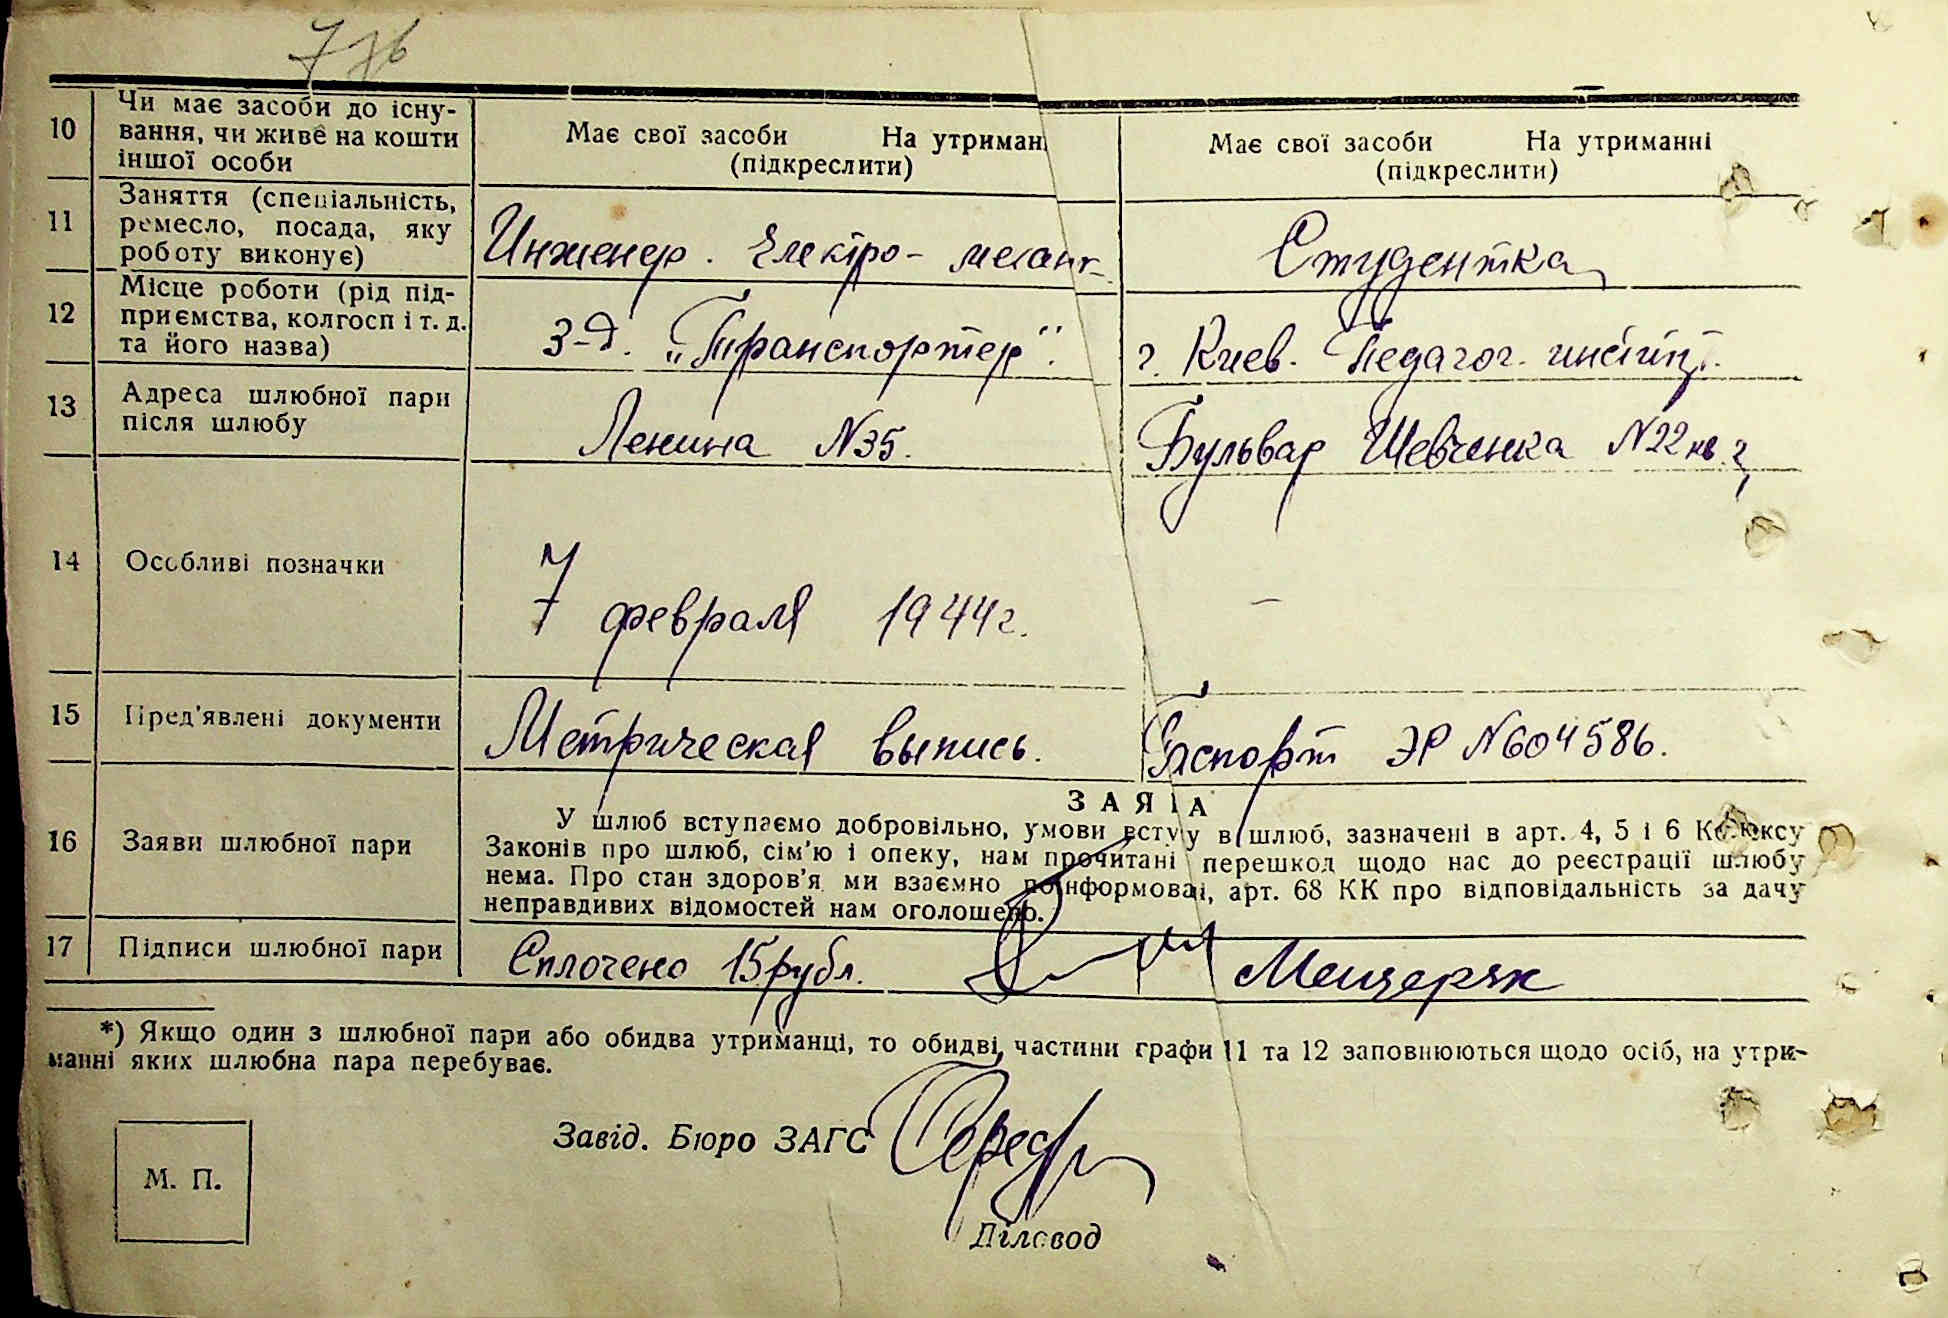 10 Чи має засоби до існу-
вання, чи живе на кошти
іншої особи
Має свої засоби На утриман
(підкреслити)
Має свої засоби На утриманні
(підкреслити)
11 Заняття (спеціальність,
ремесло, посада, яку
роботу виконує)
Инженер. Електро-механ
Студентка
12 Місце роботи (рід під-
приємства, колгосп і т. д.
та його назва)
З-д. „Транспортер".
г. Киев. Педагог. инстит.
13 Адреса шлюбної пари
після шлюбу
Ленина N35.
Бульвар Шевченка N22 кв. 2
14 Особливі позначки
7 февраля 1944г.
–
15 Пред'явлені документи
Метрическая выпись.
Паспорт ЭР N604586.
16 Заяви шлюбної пари
ЗАЯВА
У шлюб вступаємо добровільно, умови вступу в шлюб, зазначені в арт. 4, 5 і 6 Кодексу
Законів про шлюб, сім'ю і опеку, нам прочитані перешкод щодо нас до реєстрації шлюбу
нема. Про стан здоров'я ми взаємно поінформовані, арт. 68 КК про відповідальність за дачу
неправдивих відомостей нам оголошено.)
17 Підписи шлюбної пари
Сплочено 15 рубл.
Мещеряк
*) Якщо один з шлюбної пари або обидва утриманці, то обидві частини графи 11 та 12 заповнюються щодо осіб, на утри-
манні яких шлюбна пара перебуває.
Завід. Бюро ЗАГС
М. П.
Діловод